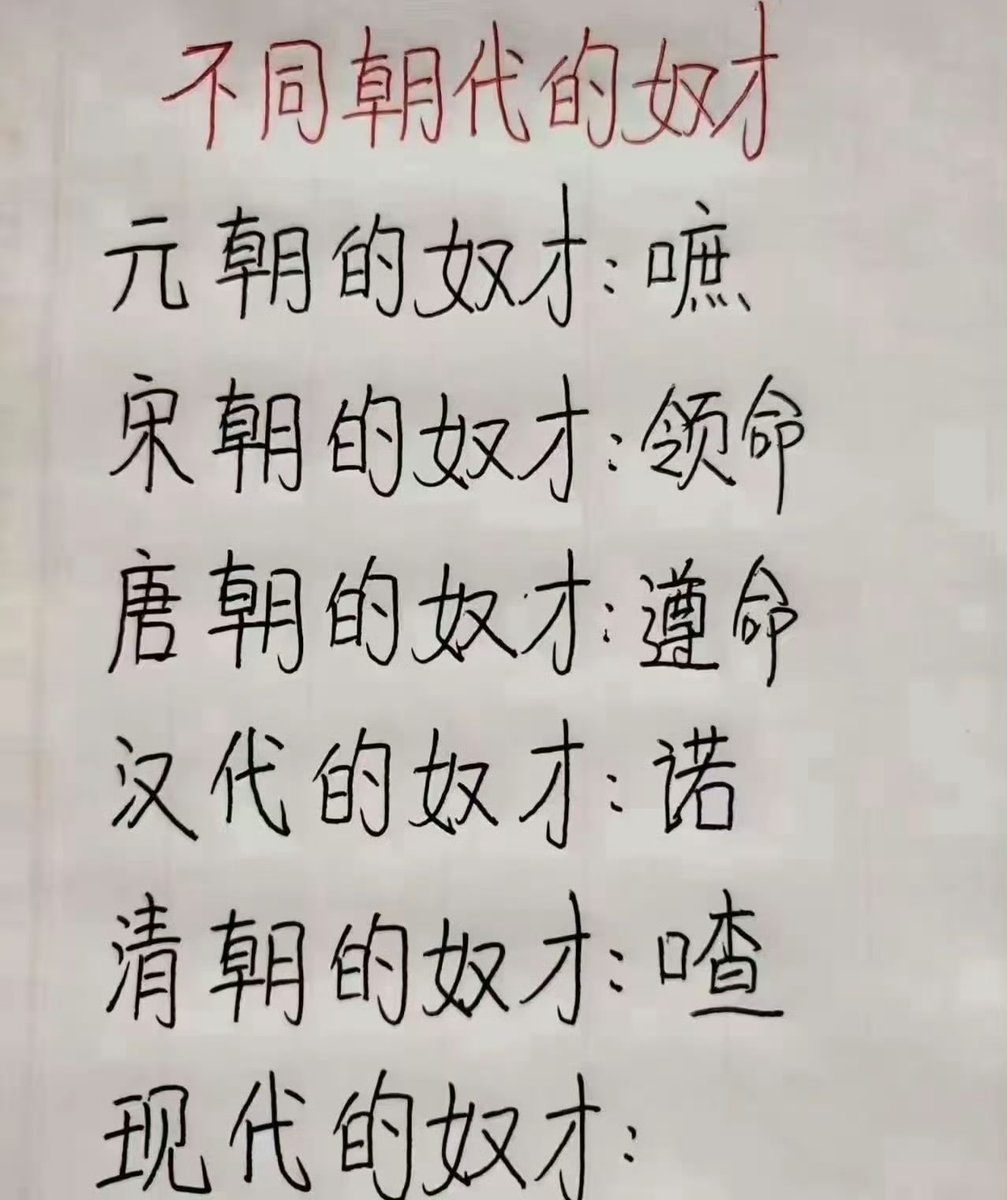 不同朝代的奴才
元朝的奴才:嗻
宋朝的奴才:领命
唐朝的奴才:遵命
汉代的奴才:诺
清朝的奴才:喳
现代的奴才: